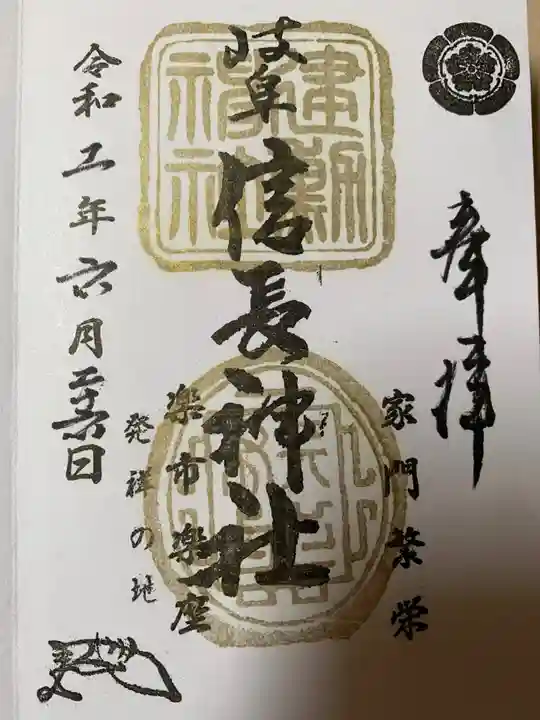 奉拝
家門繁栄
岐阜 信長神社
建勲神社
楽市楽座
発祥の地
令和五年六月二十六日